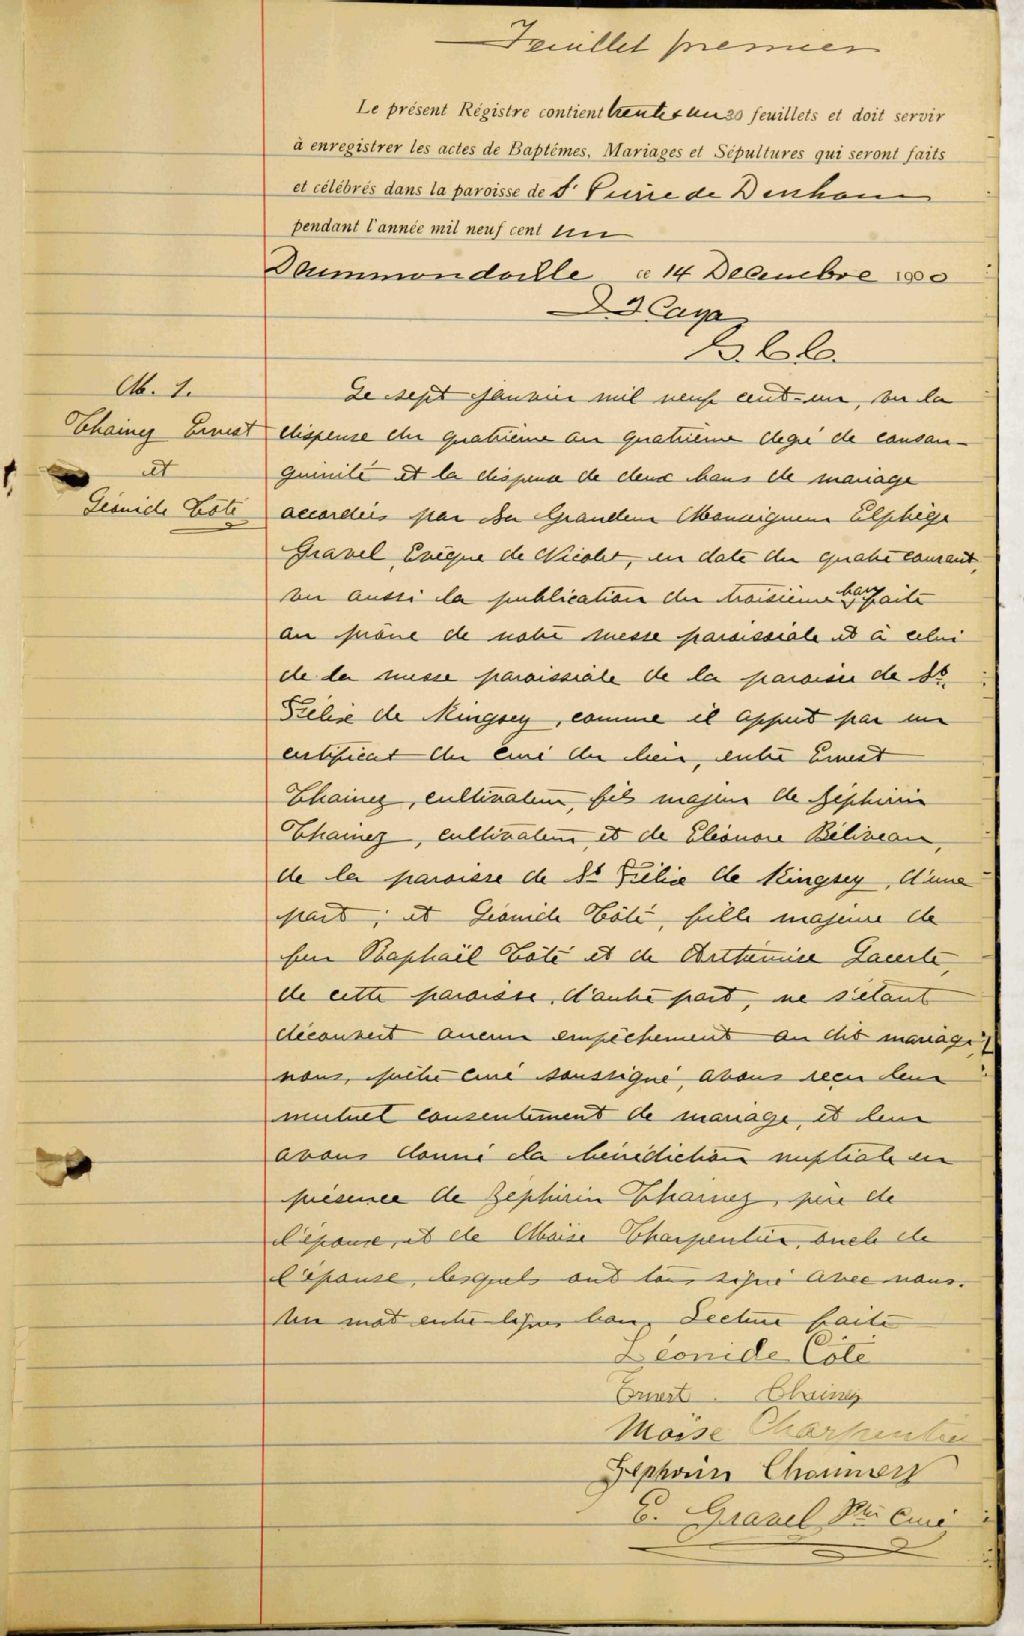 Feuillet premier
Le présent Régistre contient trente & un 30 feuillets et doit servir
à enregistrer les actes de Baptêmes, Mariages et Sépultures qui seront faits
et célébrés dans la paroisse de St Pierre de Durham
pendant l'année mil neuf cent un
Drummondville ce 14 Decembre 1900
Caya
G. C. C.
M. 1.
Chainey Ernest
et
Léonide Côté
Le sept janvier mil neuf cent-un, vu la
dispense du quatrième au quatrième degré de consan-
guinité et la dispense de deux bans de mariage
accordées par Sa Grandeur Monseigneur Elphège
Gravel, Evêque de Nicolet, en date du quatre courant,
vu aussi la publication du troisième ban faite
au prône de notre messe paroissiale et à celui
de la messe paroissiale de la paroisse de St.
Félix de Kingsey, comme il appert par un
certificat du curé du lieu, entre Ernest
Chainez, cultivateur, fils majeur de Zéphirin
Chainez, cultivateur, et de Eléonore Béliveau,
de la paroisse de St Félix de Kingsey, d'une
part; et Léonide Côté, fille majeure de
feu Raphaël Côté et de Arthémise Lacerte,
de cette paroisse, d'autre part, ne s'étant
découvert aucun empêchement au dit mariage,
nous, prêtre curé soussigné, avons reçu leur
mutuel consentement de mariage, et leur
avons donné la bénédiction nuptiale en
présence de Zéphirin Chainez, père de
l'époux, et de Moïse Charpentier, oncle de
l'épouse, lesquels ont tous signé avec nous.
Un mot entre lignes bon. Lecture faite
Léonide Côté
Ernest Chainey
Moïse Charpentier
Zephirin Chainnez
E. Gravel Ptre Curé